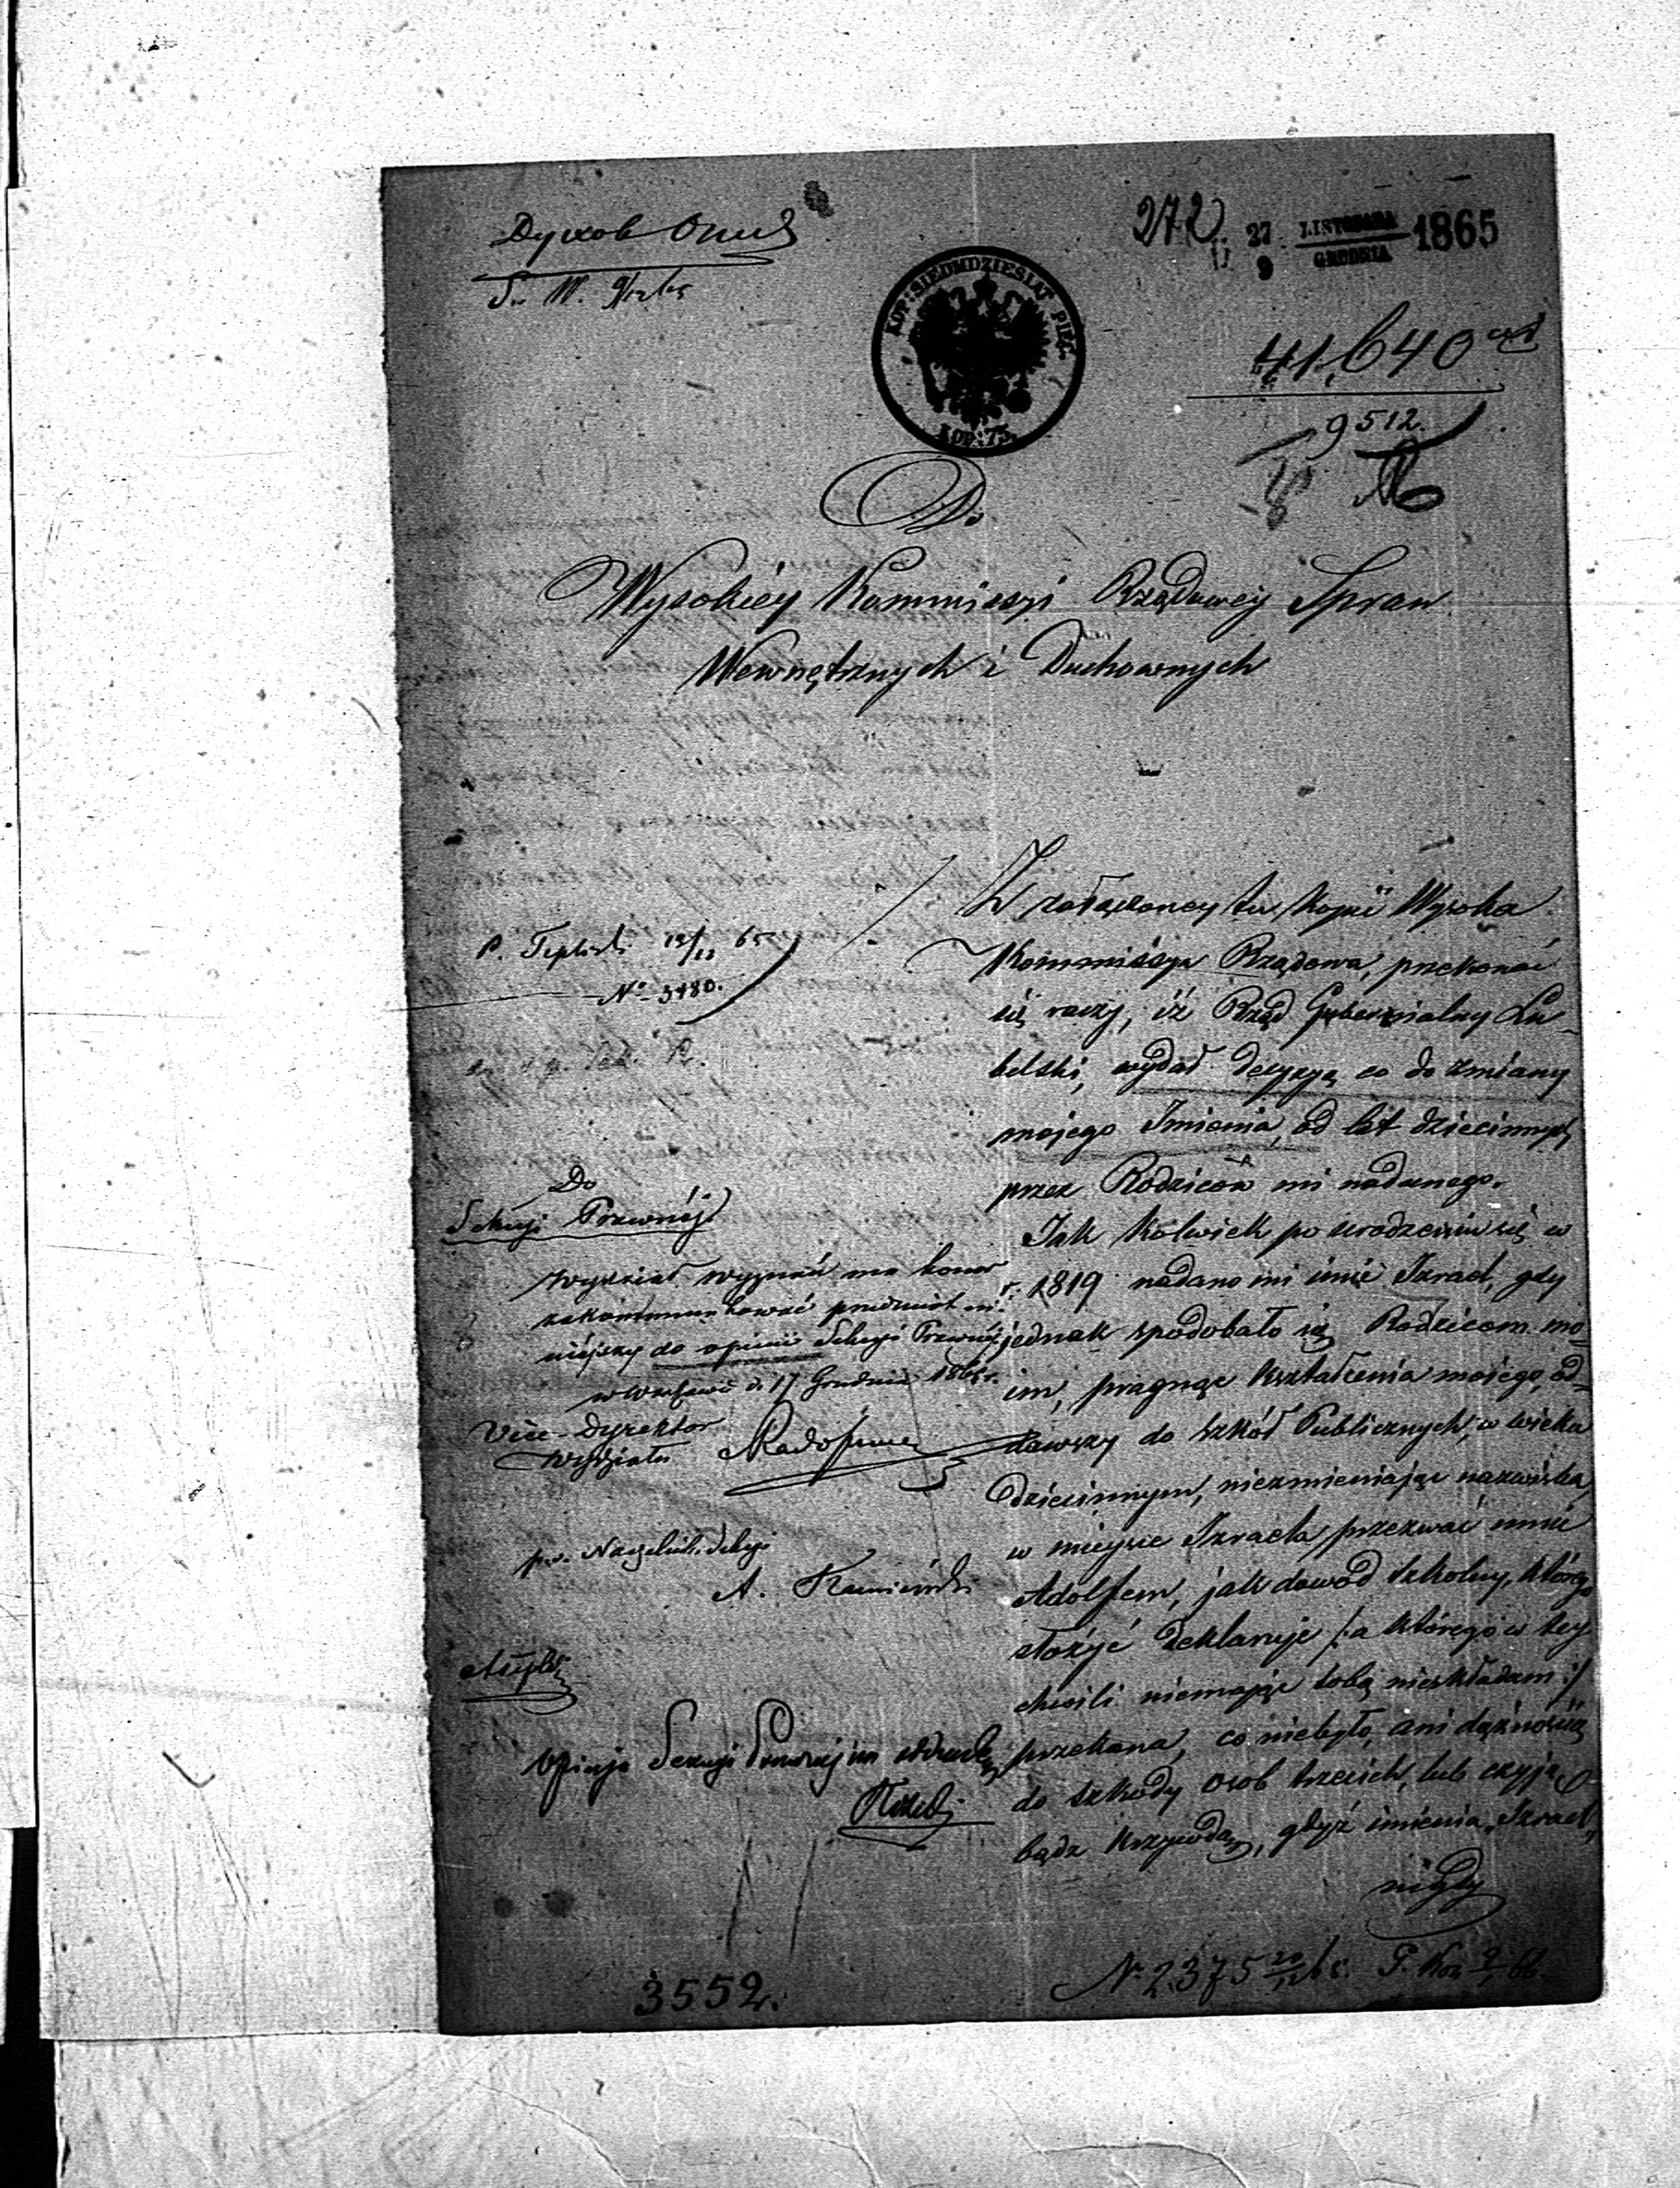 272
27 LISTOPADA 1865
9 GRUDNIA
KOP: SIEDMDZIESIĄT PIĘĆ.
KOP: 75.
41,640
9512.
Do
Wysokiéy Kommissyi Rządowéy Spraw
Wewnętrznych i Duchownych
Z załączoney tu kopii Wysoka
Kommissya Rządowa, przekonać
się raczy, iż Rząd Gubernialny Lu-
belski, wydał decyzyą co do zmiany
mojego Imienia, od lat dziecinnych
przez Rodziców mi nadanego.
Jak kolwiek po urodzeniu się w
r. 1819 nadano mi imie Izrael, gdy
jednak spodobało się Rodzicom mo-
im, pragnąc kształcenia mojego, od-
dawszy do szkół Publicznych, w wieku
dziecinnym, niezmieniając nazwiska,
w miejsce Izraela przezwać mnie
Adolfem, jak dowód szkolny, którego
złożyć deklaruje /:a którego w tey
chwili niemając sobą nieskładam:/
przekona, co niebyło, ani dążnością
do szkody osob trzecich, lub czyją
bądz krzywdą, gdyż imienia „Izrael"
nigdy
12/12 65
No 3480.
Do
Sekcyi Prawnéj
Wydział wyznań ma honor
zakommunikować przedmiot ni-
niéjszy do opinii Sekcyi Prawnéj
w Warszawie d. 17 Grudnia 1865 r.
Vice-Dyrektor
Wydziału
p.o. Naczelnik Sekcyi
A. Kamiński
Opinja Sekcyi Prawnej na odwrocie
3552.
No 2375